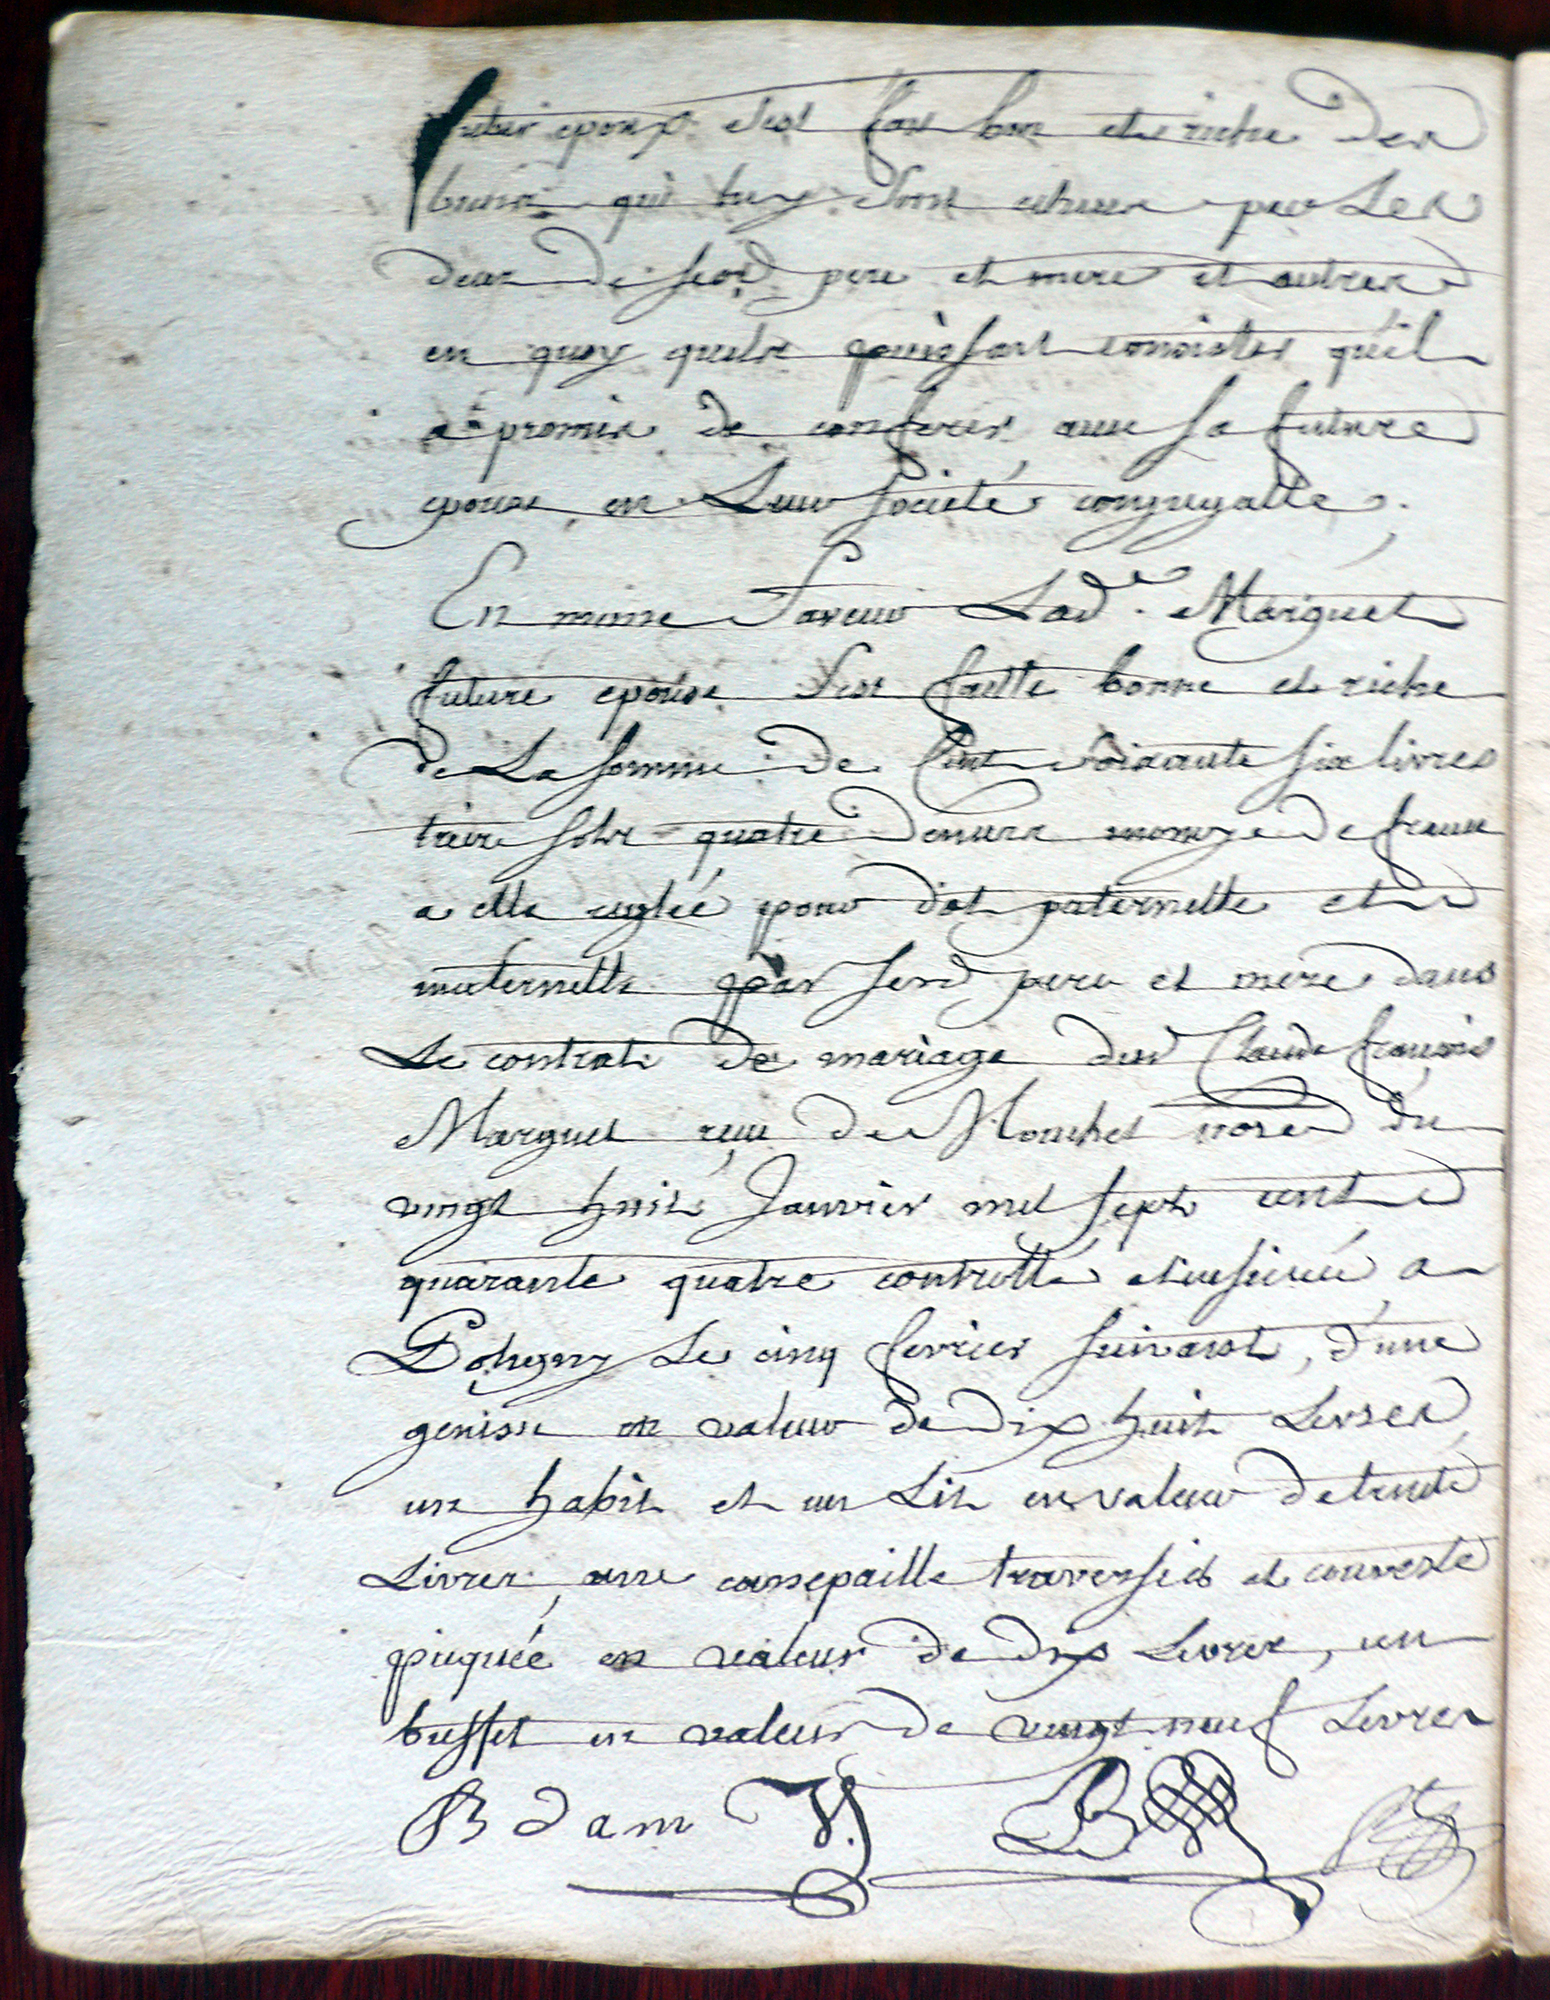 futur epoux s'est fait bon et riche des
biens qui luy sont echeus par Les
deces de sesd. pere et mere et autres
en quoy quelx puissent consister qu'il
a promis de conferer avec sa future
epouse en Leur societé conjugalle.
En meme Faveur Lad.e Marguet
future epouse s'est faitte bonne et riche
de La somme de Cent soixante six livres
treize sols quatre deniers monoye de france
a elle reglée pour dot paternelle et
maternelle par sesd. pere et mere dans
Le contrat de mariage dud. Claude françois
Marguet reçu de Monchet nore du
vingt huit Janvier mil sept cent
quarante quatre controllé et insinué a
Poligny Le cinq fevrier suivant, d'une
genisse en valeur de dix huit Livres,
un habit et un Lit en valeur de trente
Livres, une cassepaille traversier et couverte
piquée en valeur de dix Livres, un
buffet en valeur de vingt neuf Livres